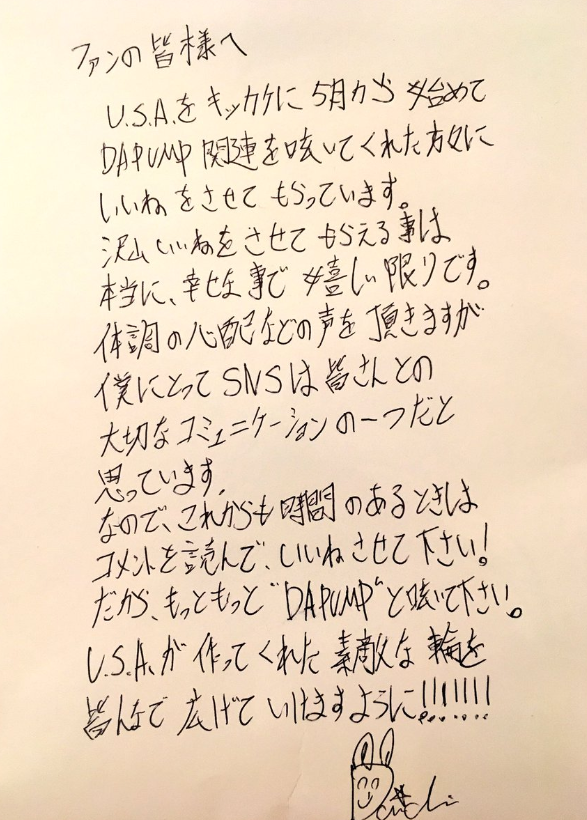 ファンの皆様へ
U.S.A.をキッカケに5月から始めて
DAPUMP関連を呟いてくれた方々に
いいねをさせてもらっています。
沢山いいねをさせてもらえる事は
本当に、幸せな事で嬉しい限りです。
体調の心配などの声を頂きますが
僕にとってSNSは皆さんとの
大切なコミュニケーションの一つだと
思っています。
なので、これからも時間のあるときは
コメントを読んで、いいねさせて下さい!
だから、もっともっと"DAPUMP"と呟いて下さい。
U.S.A.が作ってくれた素敵な輪を
皆んなで広げていけますように!!!!!!!